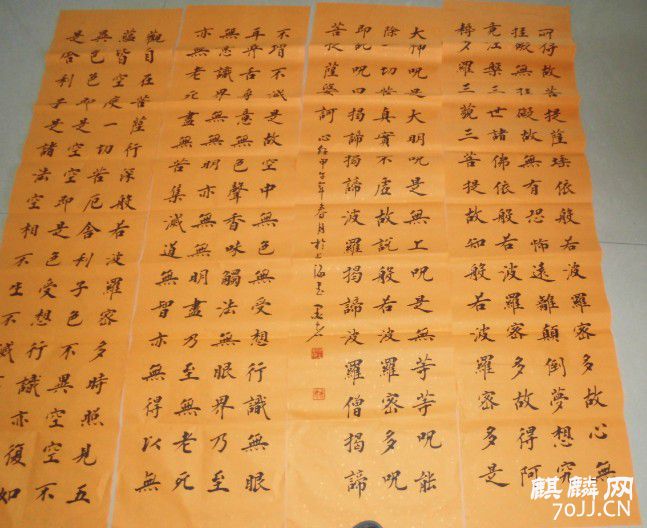 觀自在菩薩行深般若波羅密多時照見五
蘊皆空度一切苦厄舍利子色不異空空不
異色色即是空空即是色受想行識亦復如
是舍利子是諸法空相不生不滅
不增不減是故空中無色無受想行識無眼
耳鼻舌身意無色聲香味觸法無眼界乃至
無意識界無無明亦無無明盡乃至無老死
亦無老死盡無苦集滅道無智亦無得以無
所得故菩提薩埵依般若波羅密多故心無
罣礙無罣礙故無有恐怖遠離顛倒夢想究
竟涅槃三世諸佛依般若波羅密多故得阿
耨多羅三藐三菩提故知般若波羅密多是
大神呪是大明呪是無上呪是無等等呪能
除一切苦真實不虛故說般若波羅密多呪
即說呪曰揭諦揭諦波羅揭諦波羅僧揭諦
菩提薩婆訶 心經甲午年春月於上海
麒麟网
70JJ.CN